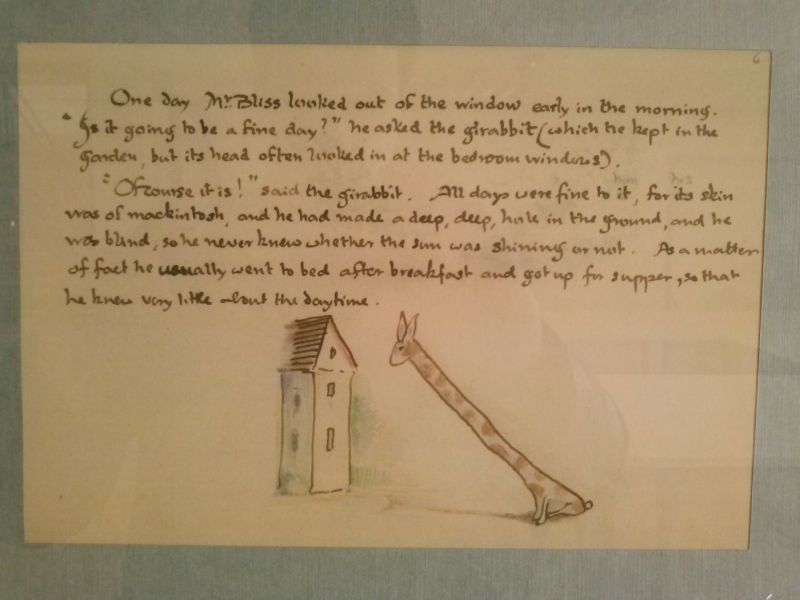 6
One day Mr. Bliss looked out of the window early in the morning.
"Is it going to be a fine day?" he asked the girabbit (which he kept in the
garden, but its head often looked in at the bedroom windows).
"Of course it is!" said the girabbit. All days were fine to it, for its skin
was of mackintosh, and he had made a deep, deep, hole in the ground, and he
was blind, so he never knew whether the sun was shining or not. As a matter
of fact he usually went to bed after breakfast and got up for supper, so that
he knew very little about the daytime.